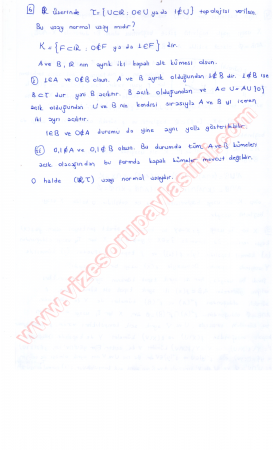 4) ℝ üzerinde τ={U⊂ℝ : 0∈U ya da 1∉U} topolojisi verilsin.
Bu uzay normal uzay mıdır?
K = {F⊂ℝ, 0∉F ya da 1∈F} dir.
A ve B, ℝ nin ayrık iki kapalı alt kümesi olsun.
i) 1∈A ve 0∉B olsun. A ve B ayrık olduğundan 1∉B dir. 1∉B ise
B⊂τ dur yani B açıktır. B açık olduğundan ve A⊂U=A∪{0}
açık olduğundan U ve B nin kendisi sırasıyla A ve B yi içeren
iki ayrı açıktır.
1∈B ve 0∉A durumu da yine aynı yolla gösterilebilir.
ii) 0,1∉A ve 0,1∉B olsun. Bu durumda tüm A ve B kümeleri
açık olacağından bu formda kapalı kümeler mevcut değildir.
O halde (ℝ,τ) uzayı normal uzaydır.
www.vizesorupaylasimi.com